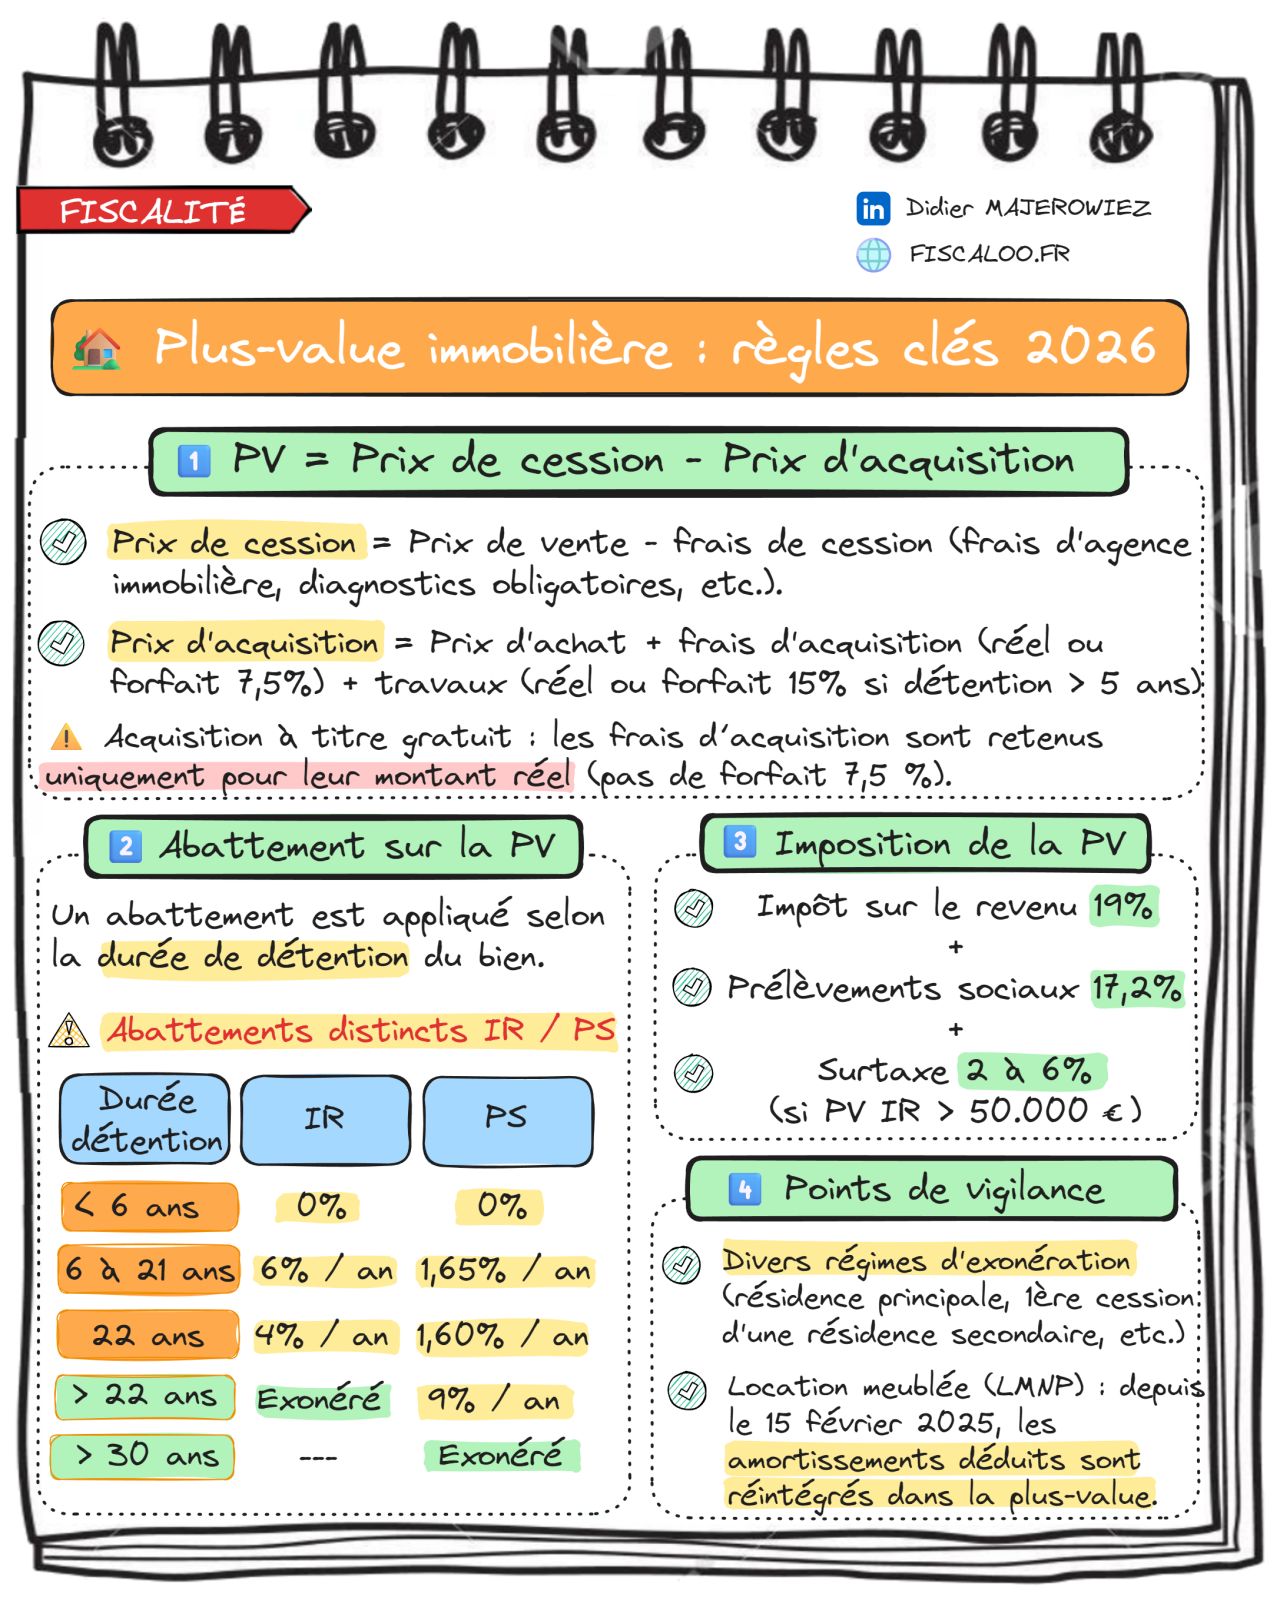 FISCALITÉ
Didier MAJEROWIEZ
FISCALOO.FR
Plus-value immobilière : règles clés 2026
1 PV = Prix de cession - Prix d'acquisition
Prix de cession = Prix de vente - frais de cession (frais d'agence
immobilière, diagnostics obligatoires, etc.).
Prix d'acquisition = Prix d'achat + frais d'acquisition (réel ou
forfait 7,5%) + travaux (réel ou forfait 15% si détention > 5 ans)
Acquisition à titre gratuit : les frais d'acquisition sont retenus
uniquement pour leur montant réel (pas de forfait 7,5 %).
2 Abattement sur la PV
Un abattement est appliqué selon
la durée de détention du bien.
Abattements distincts IR / PS
Durée
détention
IR
PS
< 6 ans 0% 0%
6 à 21 ans 6% / an 1,65% / an
22 ans 4% / an 1,60% / an
> 22 ans Exonéré 9% / an
> 30 ans --- Exonéré
3 Imposition de la PV
Impôt sur le revenu 19%
+
Prélèvements sociaux 17,2%
+
Surtaxe 2 à 6%
(si PV IR > 50.000 €)
4 Points de vigilance
Divers régimes d'exonération
(résidence principale, 1ère cession
d'une résidence secondaire, etc.)
Location meublée (LMNP) : depuis
le 15 février 2025, les
amortissements déduits sont
réintégrés dans la plus-value.